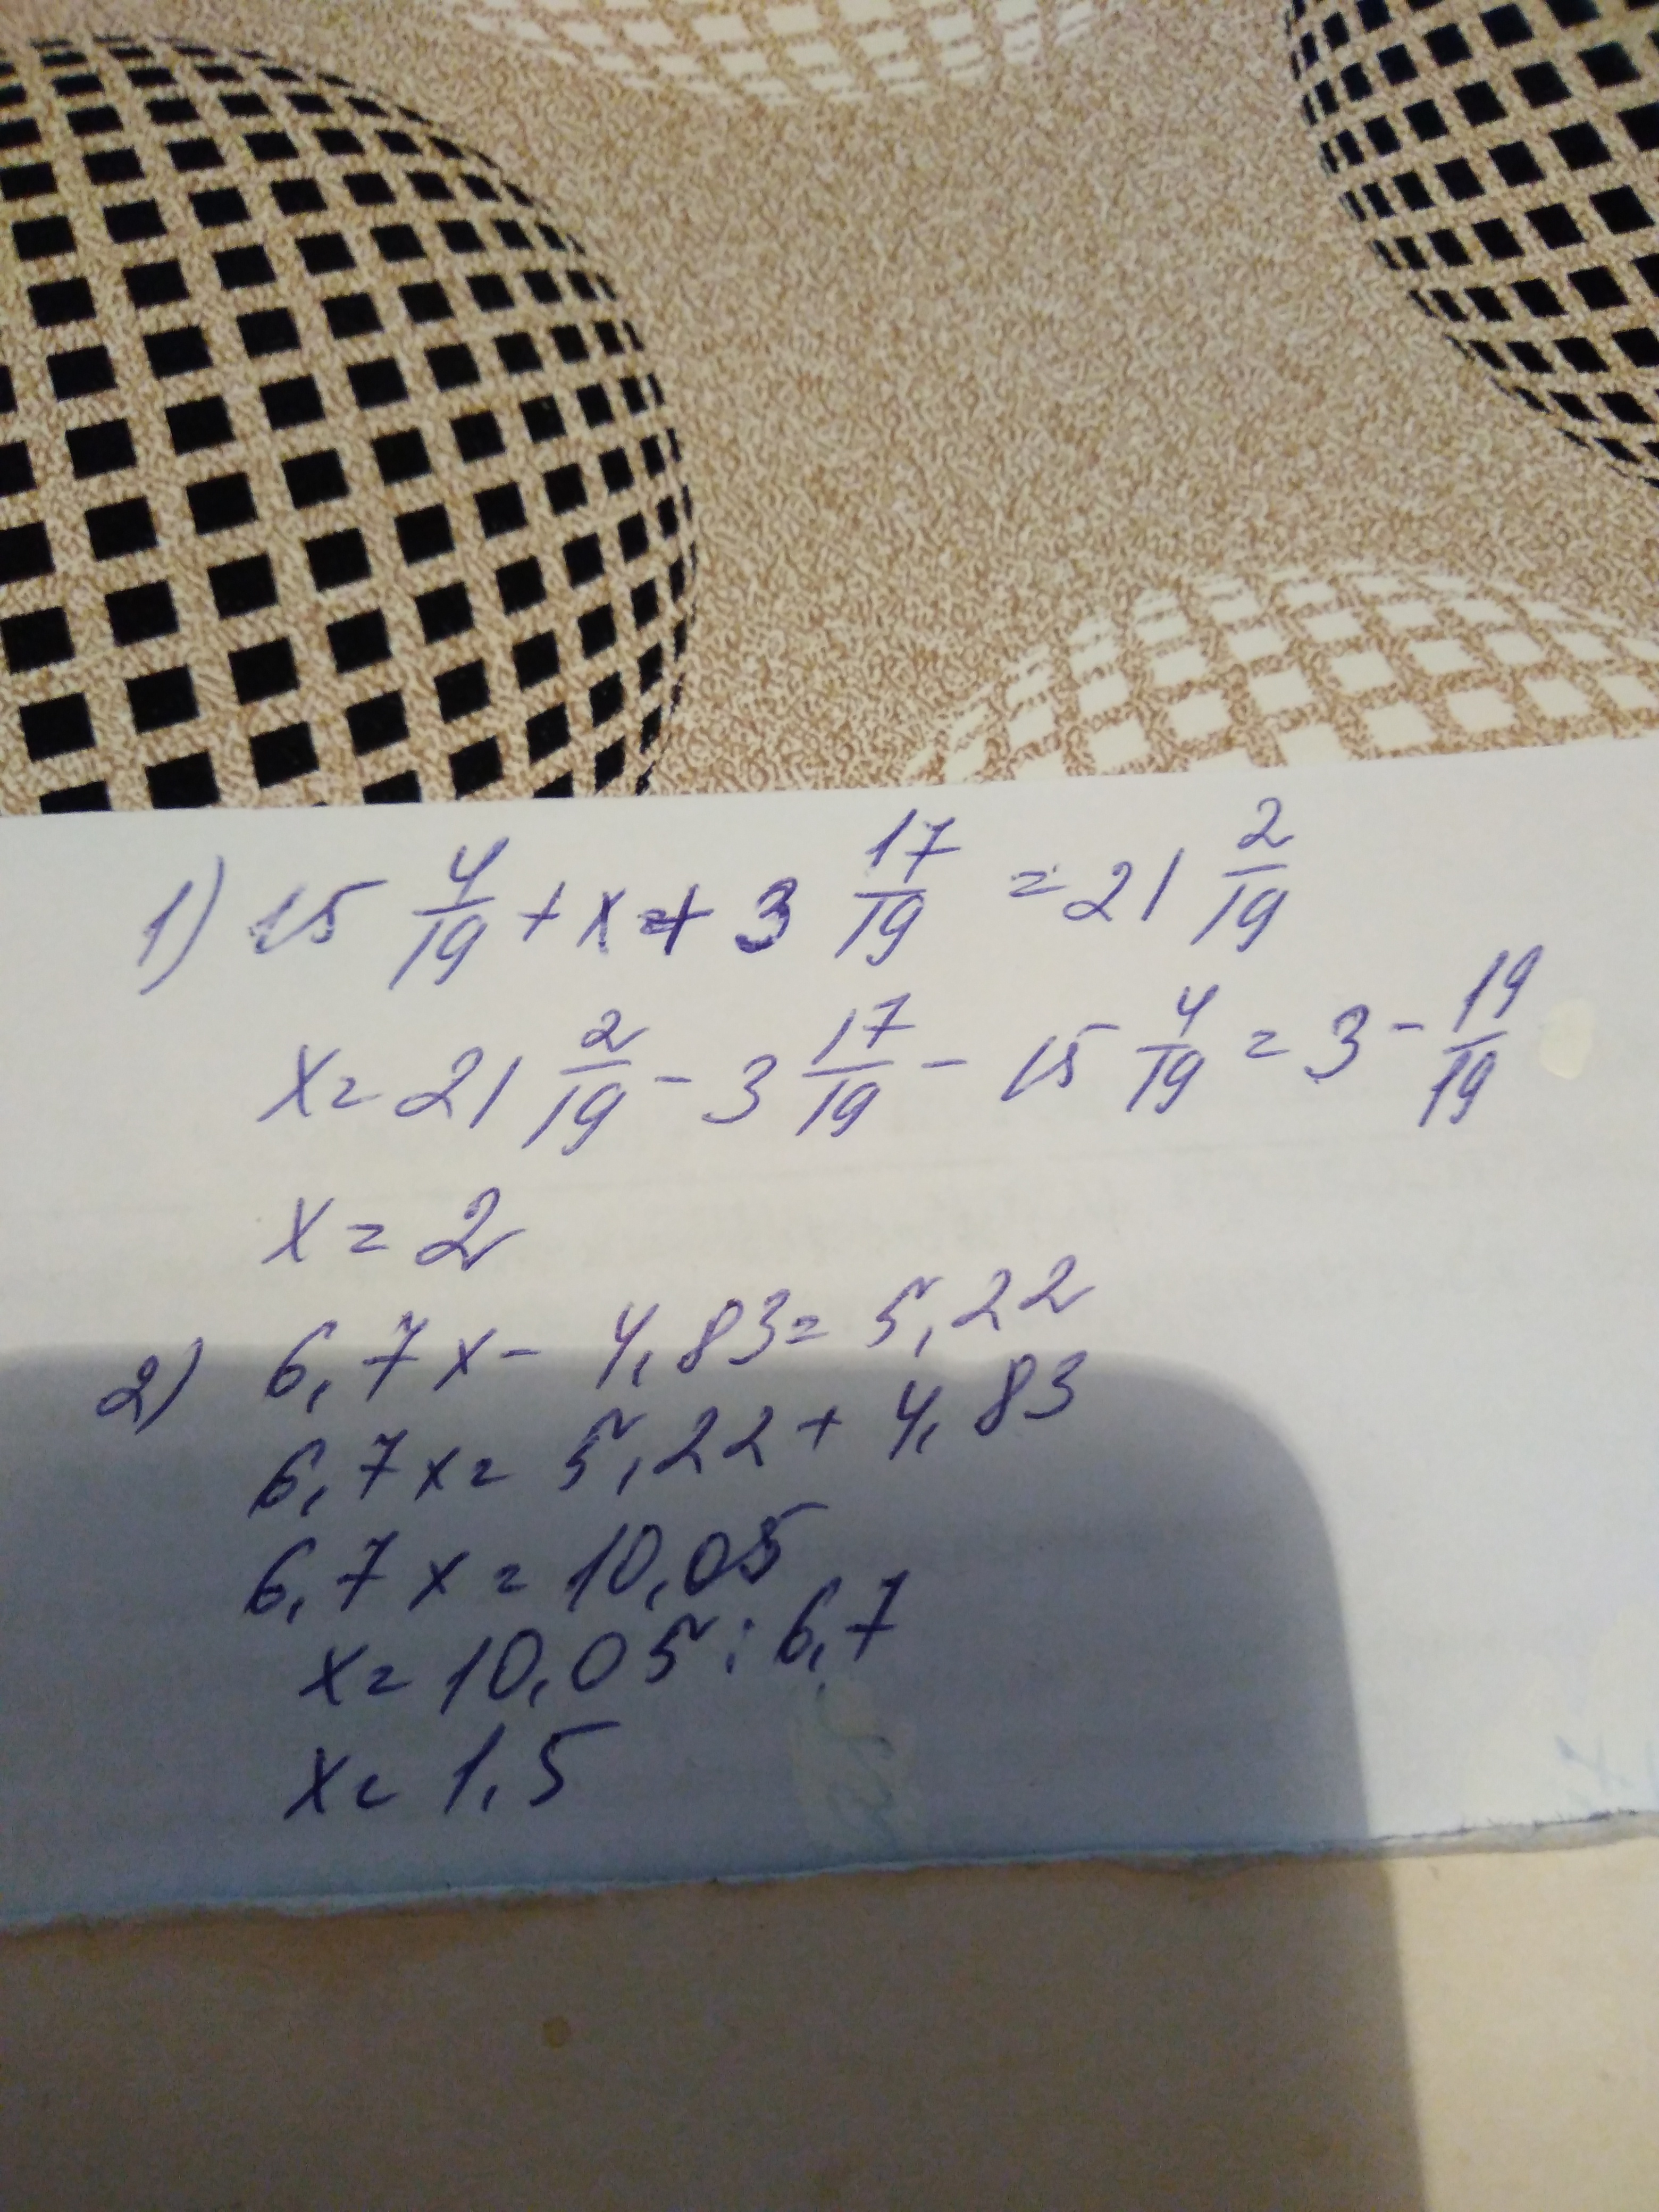 1) 15 4/19 + x + 3 17/19 = 21 2/19
x = 21 2/19 - 3 17/19 - 15 4/19 = 3 - 19/19
x = 2
2) 6,7x - 4,83 = 5,22
6,7x = 5,22 + 4,83
6,7x = 10,05
x = 10,05 : 6,7
x = 1,5